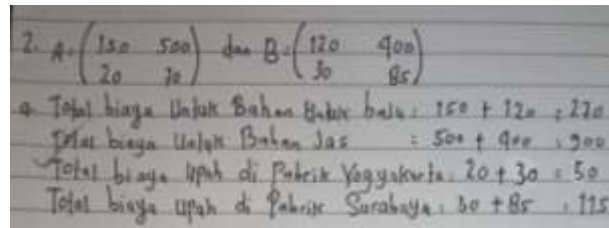 2. A = (150 500) dan B = (120 400)
(20 30) (30 85)
a. Total biaya Untuk Bahan Baku baju = 150 + 120 = 270
Total biaya Untuk Bahan Jas = 500 + 400 = 900
Total biaya upah di Pabrik Yogyakarta = 20 + 30 = 50
Total biaya upah di Pabrik Surabaya = 30 + 85 = 115